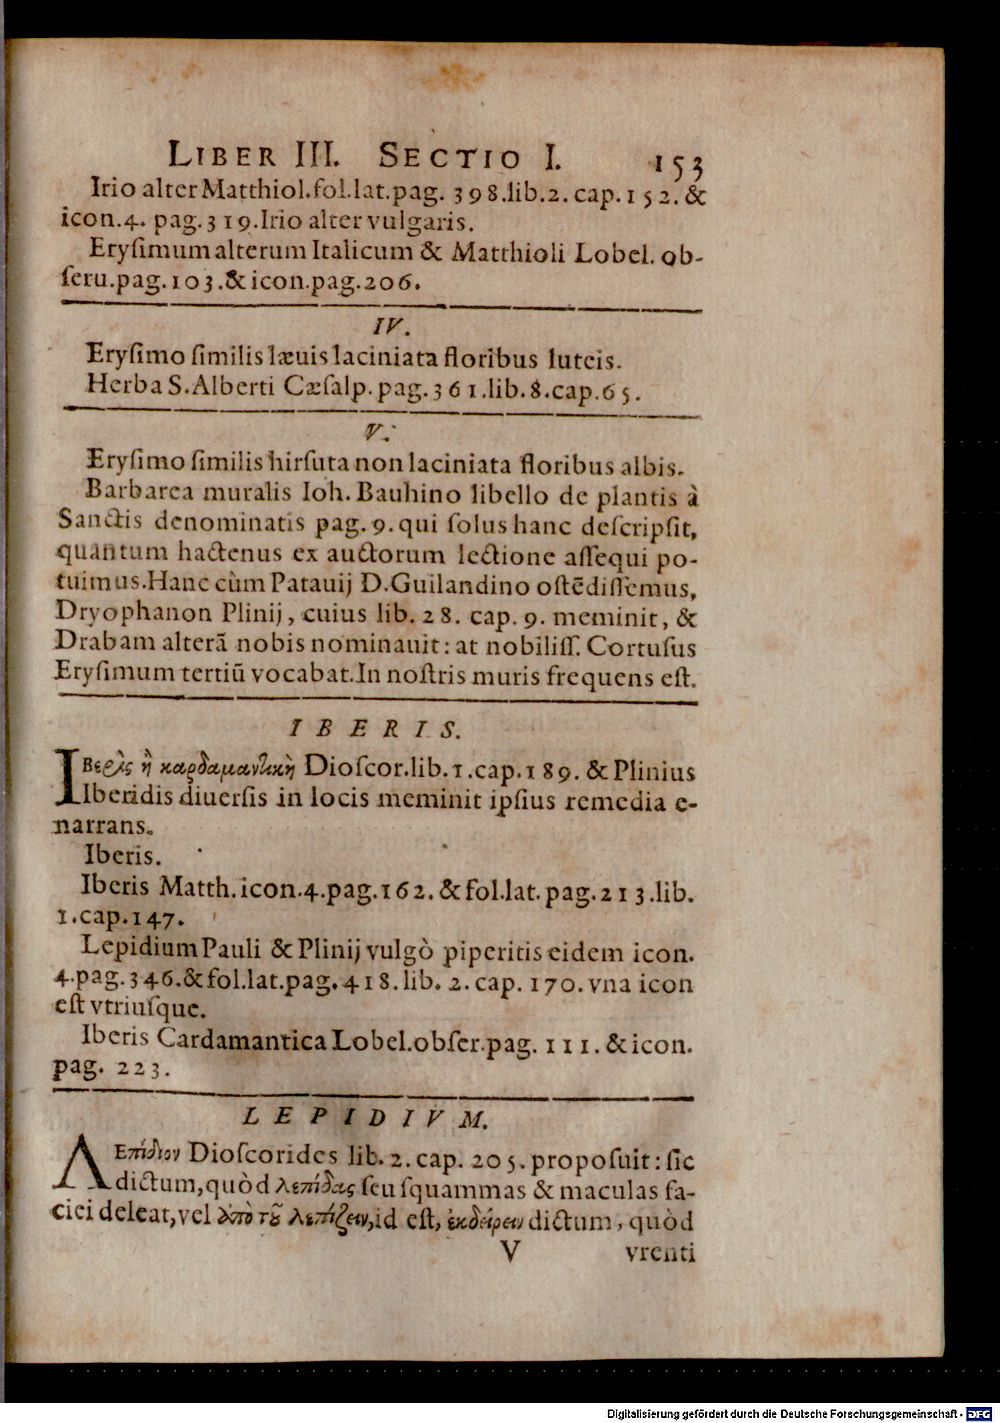 LIBER III. SECTIO I. 153
Irio alter Matthiol.fol.lat.pag. 398.lib.2. cap.152. &
icon.4. pag.319.Irio alter vulgaris.
Eryſimum alterum Italicum & Matthioli Lobel. ob-
ſeru.pag.103.& icon.pag.206.
IV.
Eryſimo ſimilis læuis laciniata floribus luteis.
Herba S.Alberti Cæſalp.pag.361.lib.8.cap.65.
V.
Eryſimo ſimilis hirſuta non laciniata floribus albis.
Barbarea muralis Ioh. Bauhino libello de plantis à
Sanctis denominatis pag.9.qui ſolus hanc deſcripſit,
quantum hactenus ex auctorum lectione aſſequi po-
tuimus.Hanc cùm Patauij D.Guilandino oſtēdiſſemus,
Dryophanon Plinij, cuius lib. 28. cap. 9. meminit, &
Drabam alterā nobis nominauit: at nobiliſſ. Cortuſus
Eryſimum tertiū vocabat.In noſtris muris frequens eſt.
IBERIS.
Ιβερὶς ἢ καρδαμαντικὴ Dioſcor.lib.1.cap.189. & Plinius
Iberidis diuerſis in locis meminit ipſius remedia e-
narrans.
Iberis.
Iberis Matth.icon.4.pag.162. & fol.lat.pag.213.lib.
1.cap.147.
Lepidium Pauli & Plinij vulgò piperitis eidem icon.
4.pag.346.& fol.lat.pag.418.lib. 2. cap. 170. vna icon
eſt vtriuſque.
Iberis Cardamantica Lobel.obſer.pag. 111. & icon.
pag. 223.
LEPIDIVM.
Λεπίδιον Dioſcorides lib.2.cap. 205.propoſuit: ſic
dictum,quòd λεπίδας ſeu ſquammas & maculas fa-
ciei deleat,vel ἀπὸ τοῦ λεπίζειν,id eſt, ἐκδείρειν dictum, quòd
V vrenti
Digitalisierung gefördert durch die Deutsche Forschungsgemeinschaft - DFG